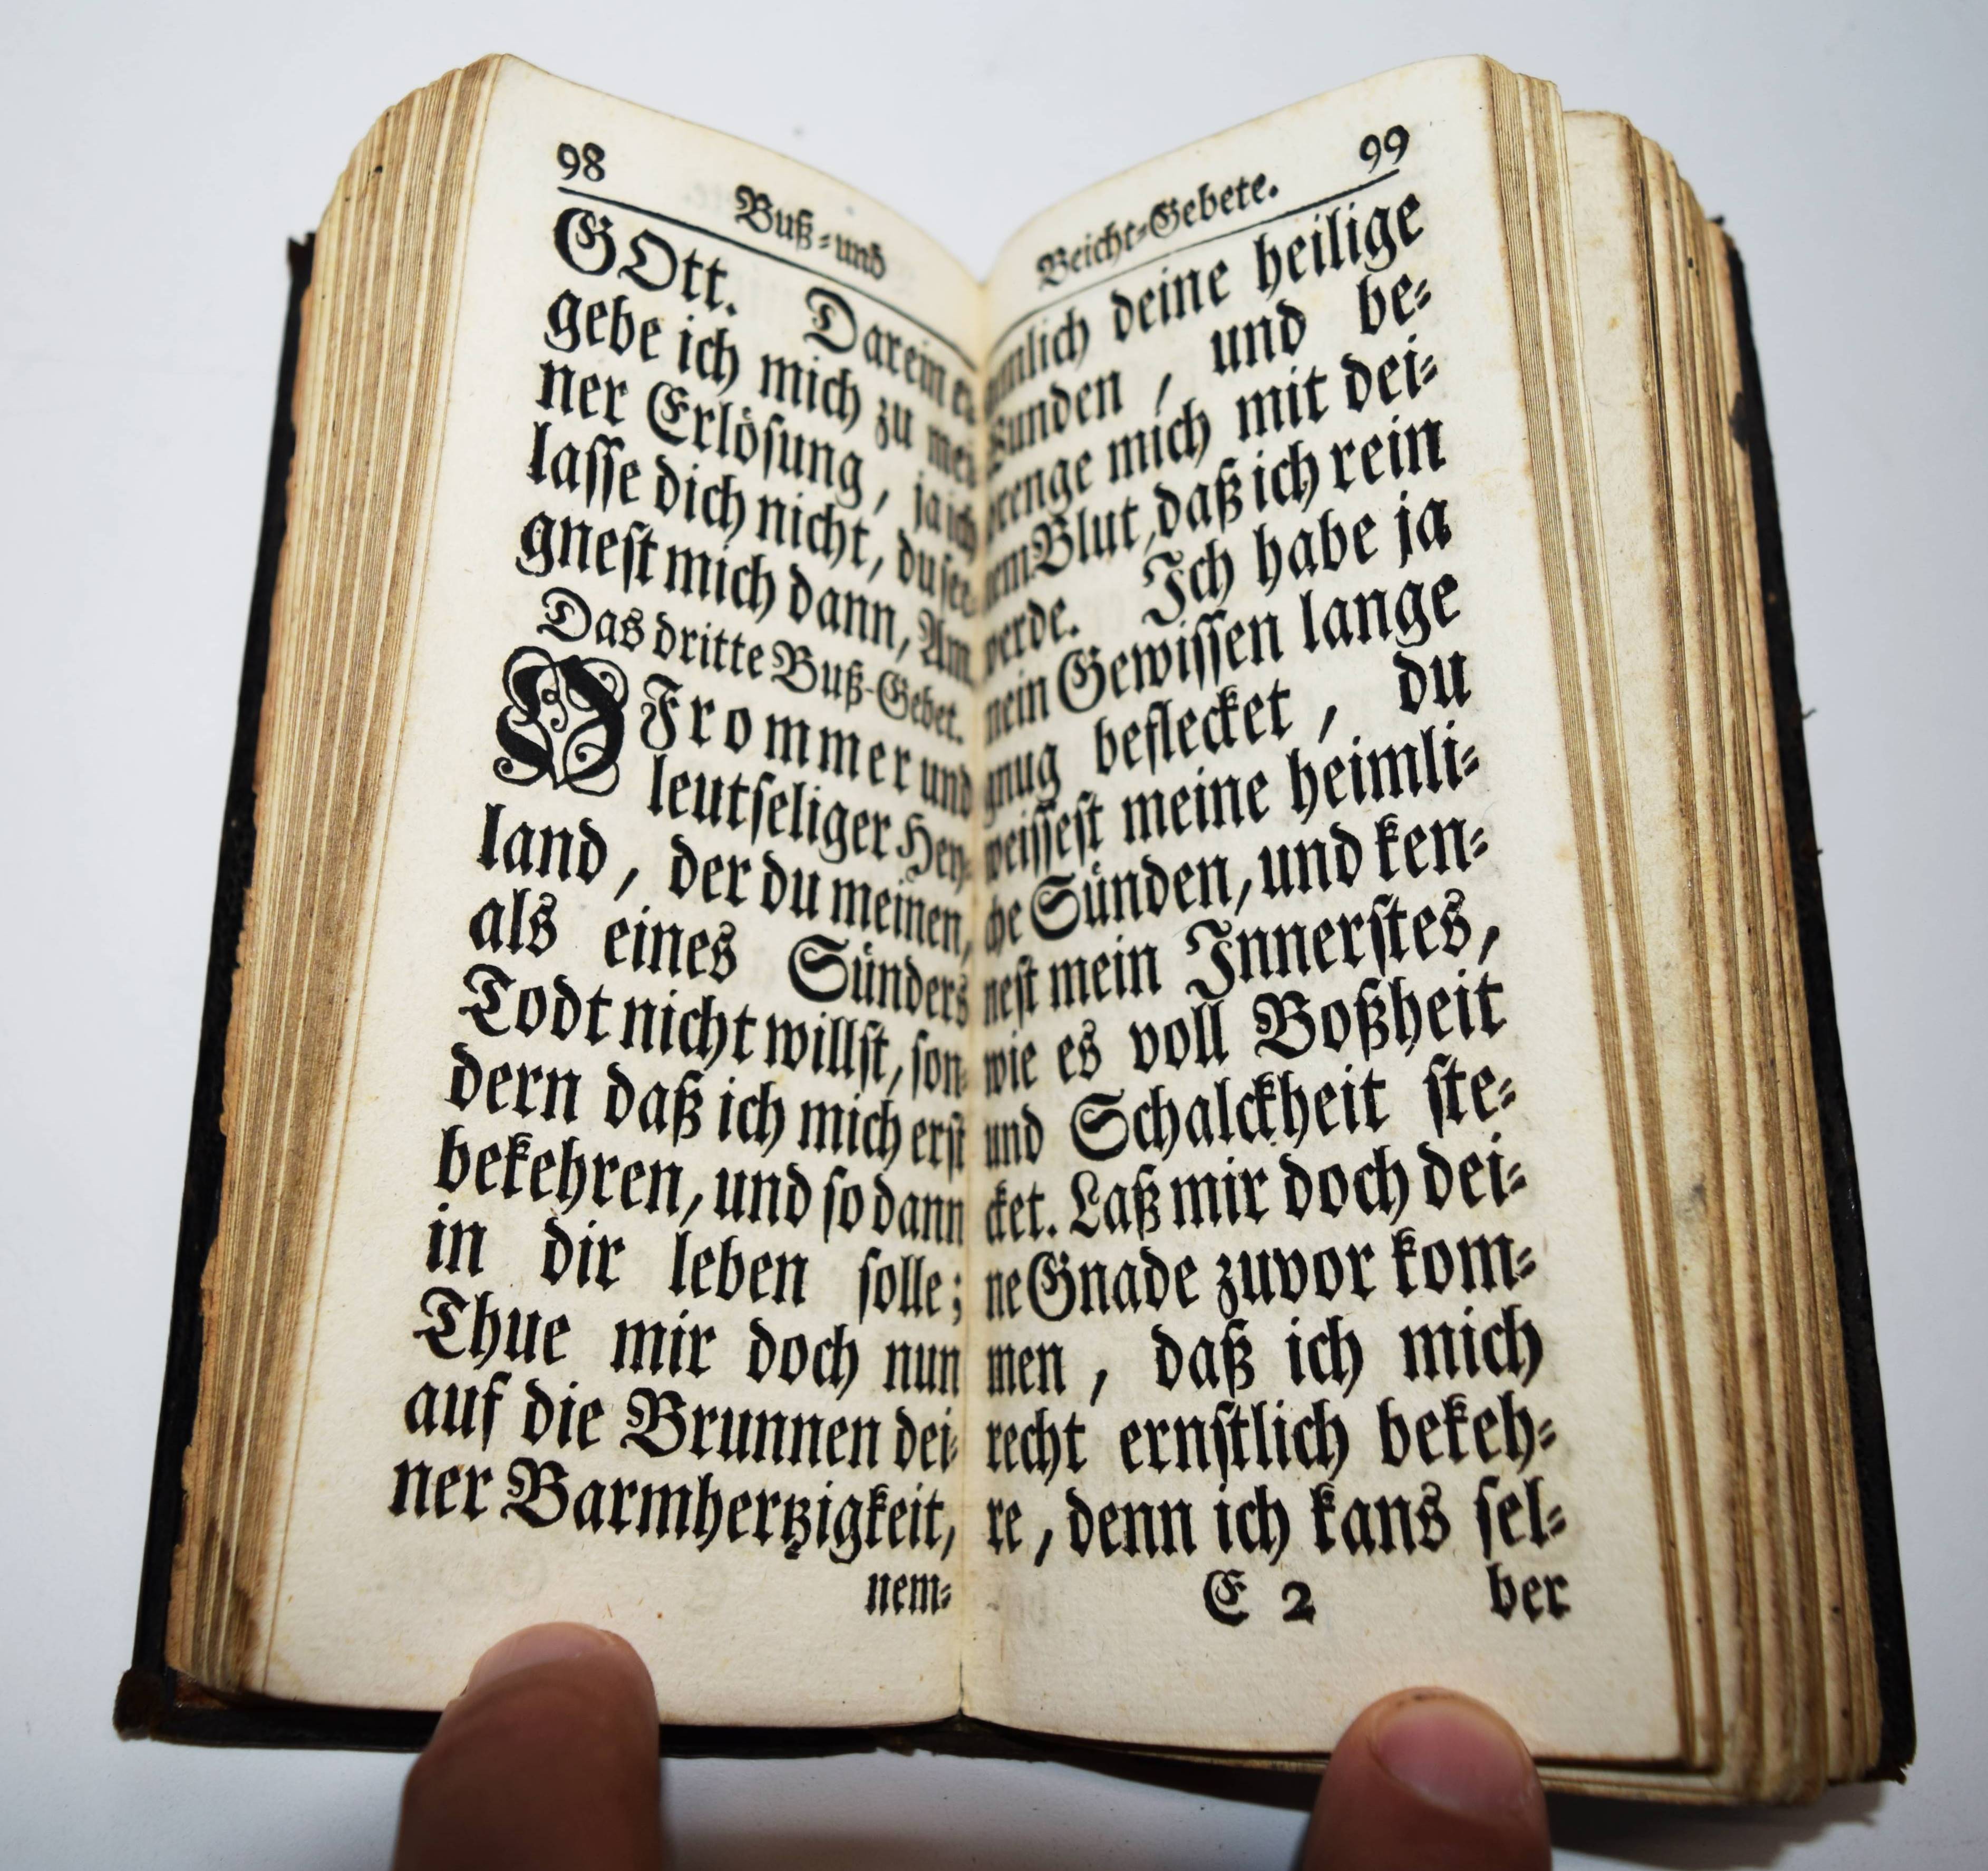 98
Buß-und
GOtt. Darein er
gebe ich mich zu mei
ner Erlösung, ja ich
lasse dich nicht, du see
gnest mich dann, Am
Das dritte Buß-Gebet.
O Frommer und
leutseliger Hey-
land, der du meinen,
als eines Sünders
Todt nicht willst, son-
dern daß ich mich erst
bekehren, und so dann
in dir leben solle;
Thue mir doch nun
auf die Brunnen dei-
ner Barmhertzigkeit,
nem-
99
Beicht-Gebete.
mlich deine heilige
unden, und be-
renge mich mit dei-
nem Blut, daß ich rein
werde. Ich habe ja
mein Gewissen lange
gnug beflecket, du
weissest meine heimli-
che Sünden, und ken-
nest mein Innerstes,
wie es voll Boßheit
und Schalckheit ste-
cket. Laß mir doch dei-
ne Gnade zuvor kom-
men, daß ich mich
recht ernstlich bekeh-
re, denn ich kans sel-
E 2 ber